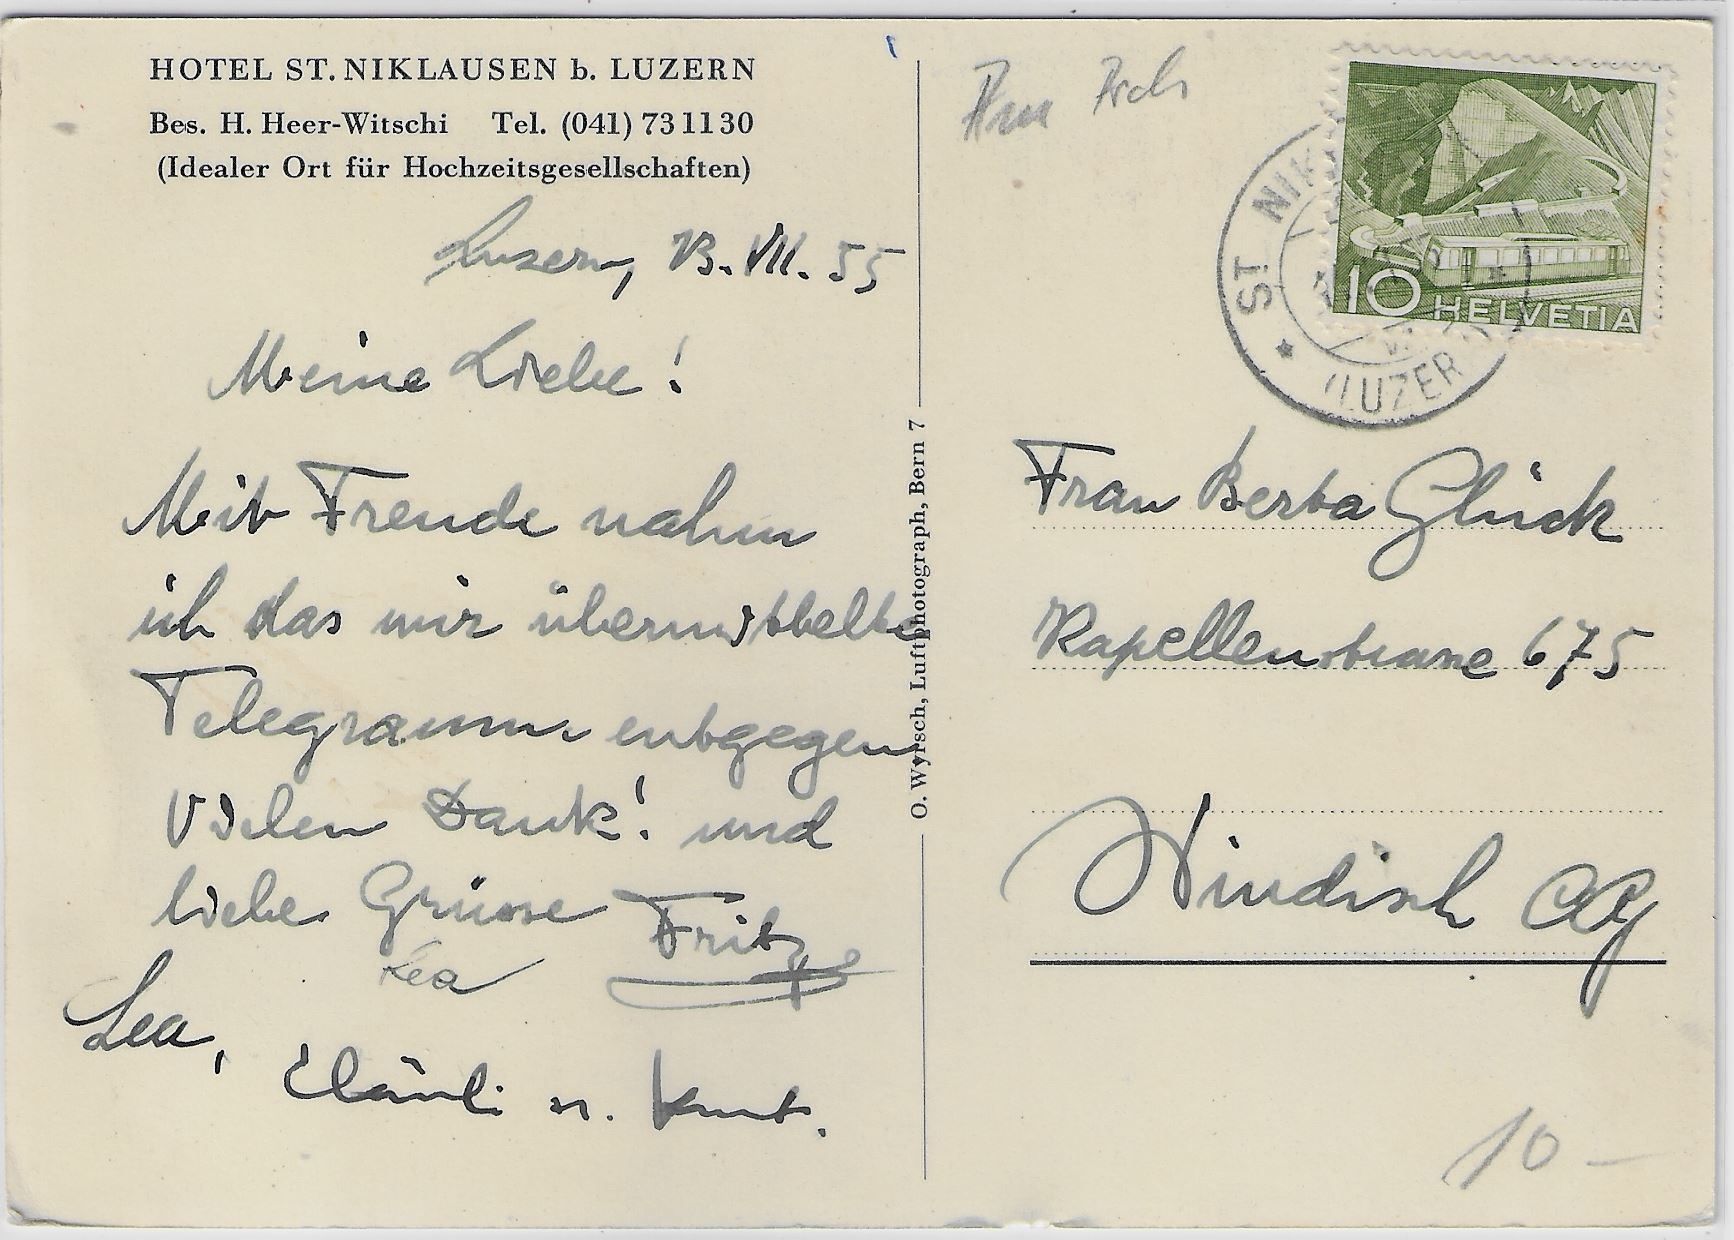 HOTEL ST. NIKLAUSEN b. LUZERN
Bes. H. Heer-Witschi Tel. (041) 73 11 30
(Idealer Ort für Hochzeitsgesellschaften)
Luzern, 13. VII. 55
Meine Liebe!
Mit Freude nahm
ich das mir übermittelte
Telegramm entgegen
Vielen Dank! und
liebe Grüsse Fritz
Lea
Lea, Cläusli u. Kurt.
O. Wyrsch, Luftphotograph, Bern 7
ST. NIK
(LUZER
10 HELVETIA
Frau Berta Glück
Kapellenstrasse 675
Windisch AG
10 –